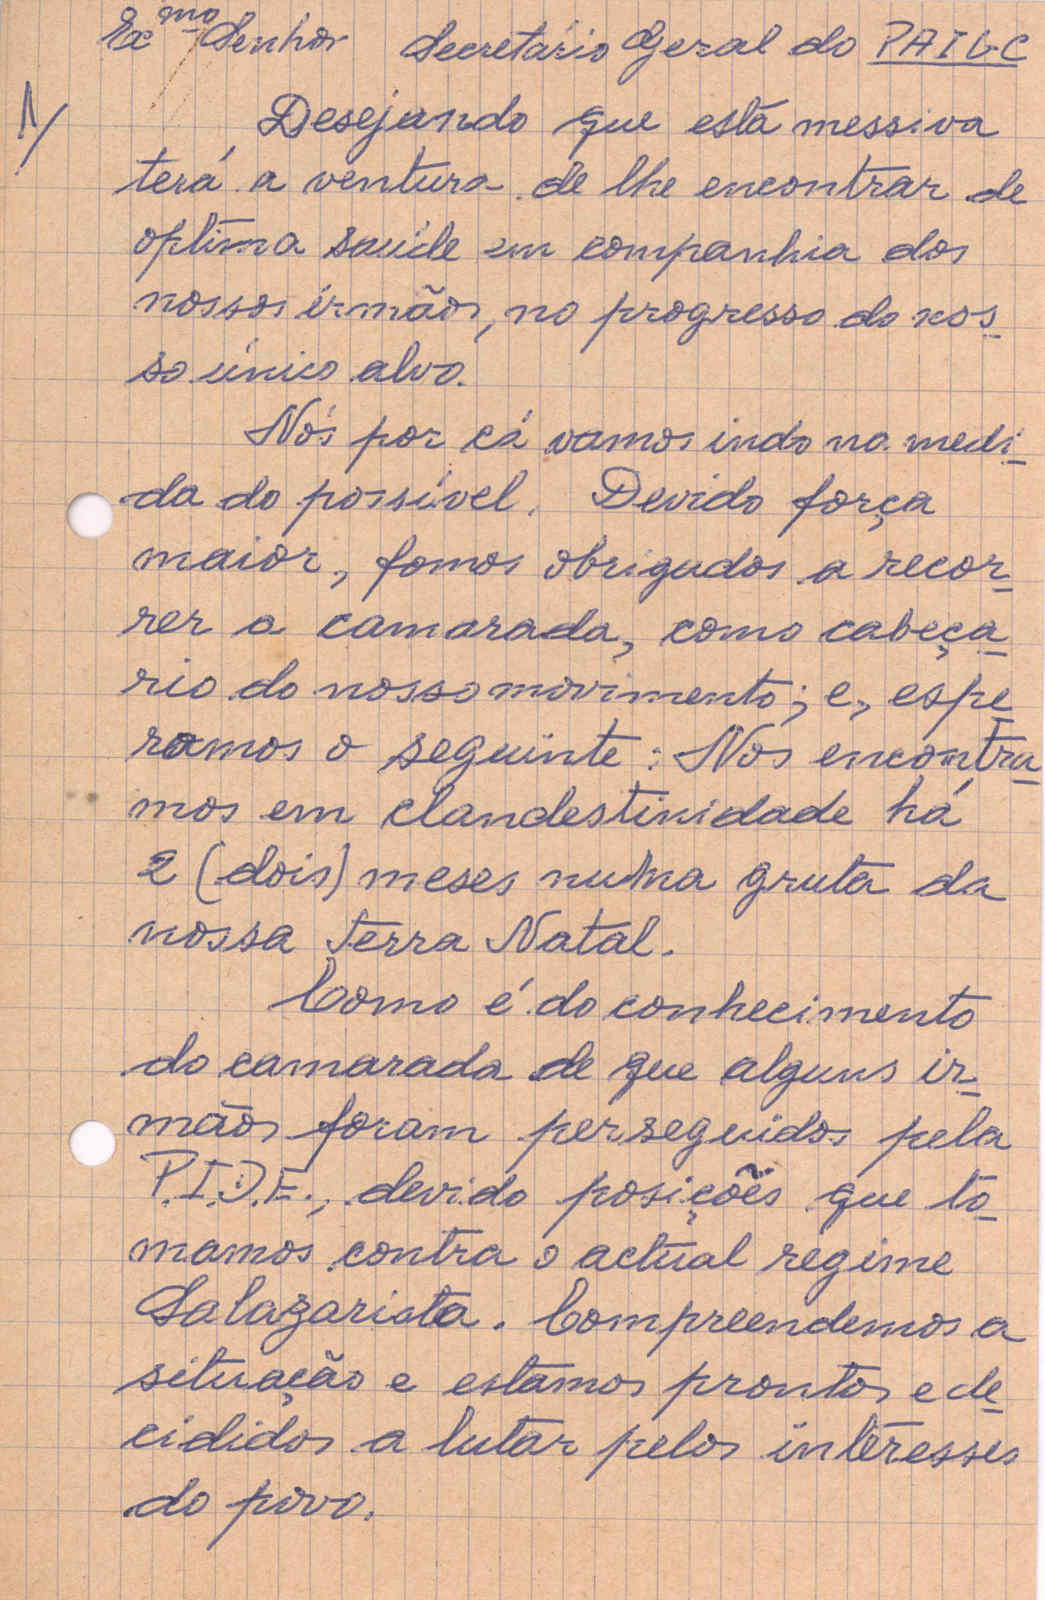 Exmo Senhor Secretário Geral do PAIGC
1/
Desejando que está messiva
terá a ventura de lhe encontrar de
optima saúde em companhia dos
nossos irmãos, no progresso do nos-
so único alvo.
Nós por cá vamos indo na medi-
da do possível. Devido força
maior, fomos obrigados a recor-
rer a camarada, como cabeça-
rio do nosso movimento; e, espe-
ramos o seguinte: Nos encontra-
mos em clandestinidade há
2 (dois) meses numa gruta da
nossa Terra Natal.
Como é do conhecimento
do camarada de que alguns ir-
mãos foram perseguidos pela
P.I.D.E., devido posições que to-
mamos contra o actual regime
Salazarista. Compreendemos a
situação e estamos prontos e de-
cididos a lutar pelos interesses
do povo.